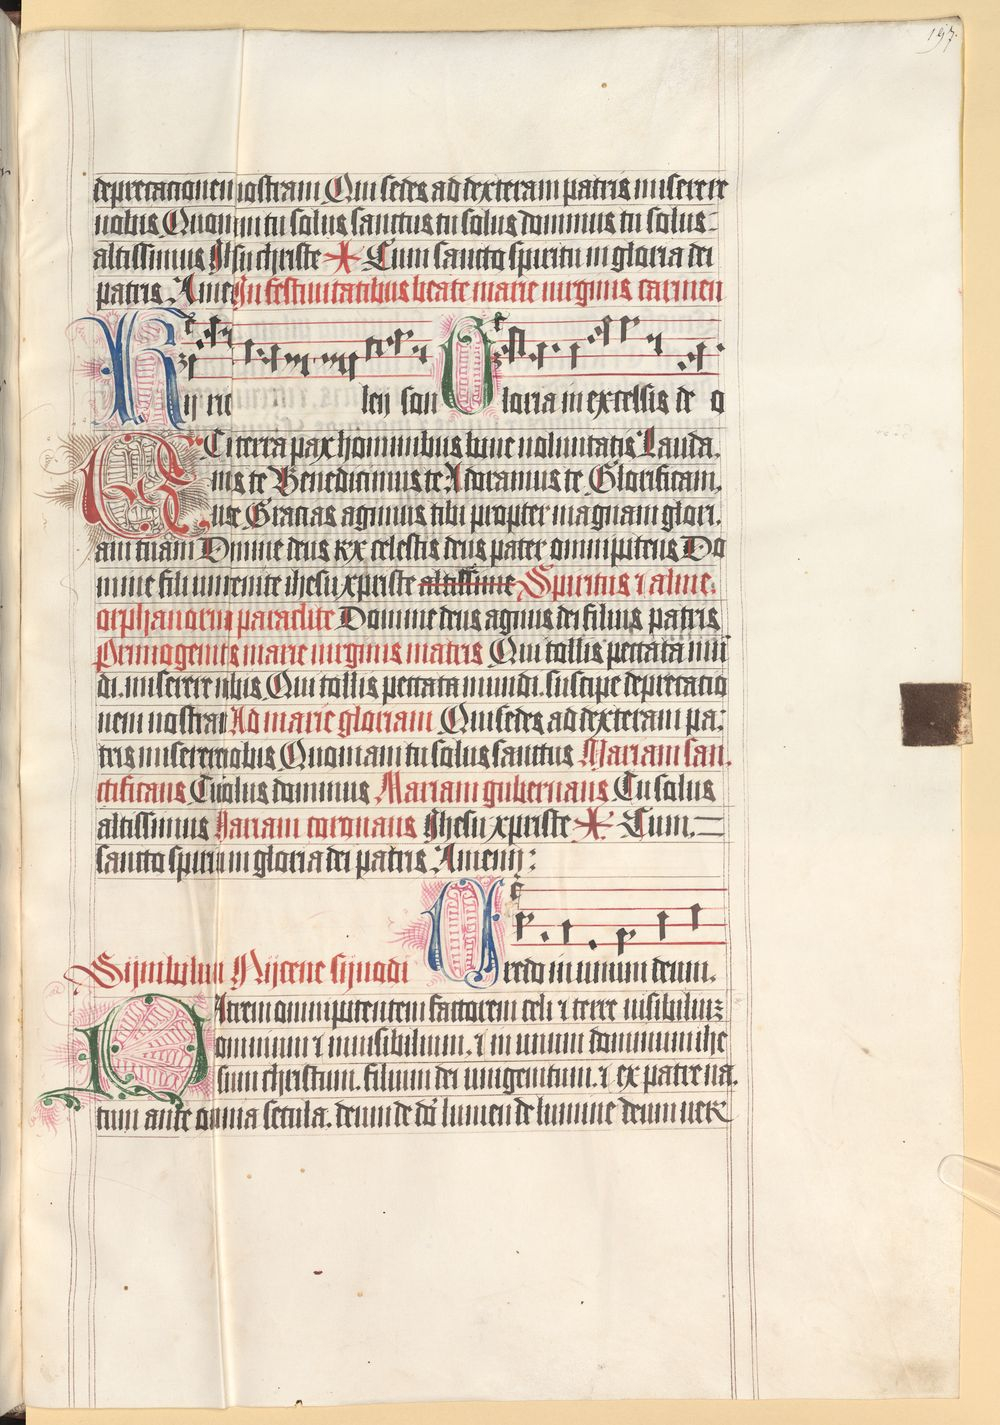 197.
deprecationem nostram Qui sedes ad dexteram patris miserere
nobis Quoniam tu solus sanctus tu solus dominus tu solus
altissimus Jhesu christe Cum sancto spiritu in gloria dei
patris Amen In festiuitatibus beate marie uirginis carmen
Kyrie leyson Gloria in excelsis de o
Et in terra pax hominibus bone uoluntatis Lauda.
mus te Benedicimus te Adoramus te Glorificam,
us te Gracias agimus tibi propter magnam glori.
am tuam Domine deus rex celestis deus pater omnipotens Do
mine fili unigenite ihesu xpriste altissime Spiritus ⁊ alme
orphanorum paraclite Domine deus agnus dei filius patris
Primogenitus marie uirginis matris Qui tollis peccata mun
di. miserere nobis Qui tollis peccata mundi. suscipe deprecatio
nem nostram Ad marie gloriam Qui sedes ad dexteram pa:
tris miserere nobis Quoniam tu solus sanctus Mariam san
ctificans Tu solus dominus Mariam gubernans Tu solus
altissimus Mariam coronans Jhesu xpriste Cum.
sancto spiritu in gloria dei patris Amen
Simbolum Nijcene sijnodi Credo in unum deum.
Patrem omnipotentem factorem celi ⁊ terre uisibilium
omnium ⁊ inuisibilium. ⁊ in unum dominum ihe
sum christum. filium dei unigenitum. ⁊ ex patre na.
tum ante omnia secula. deum de deo lumen de lumine deum uer